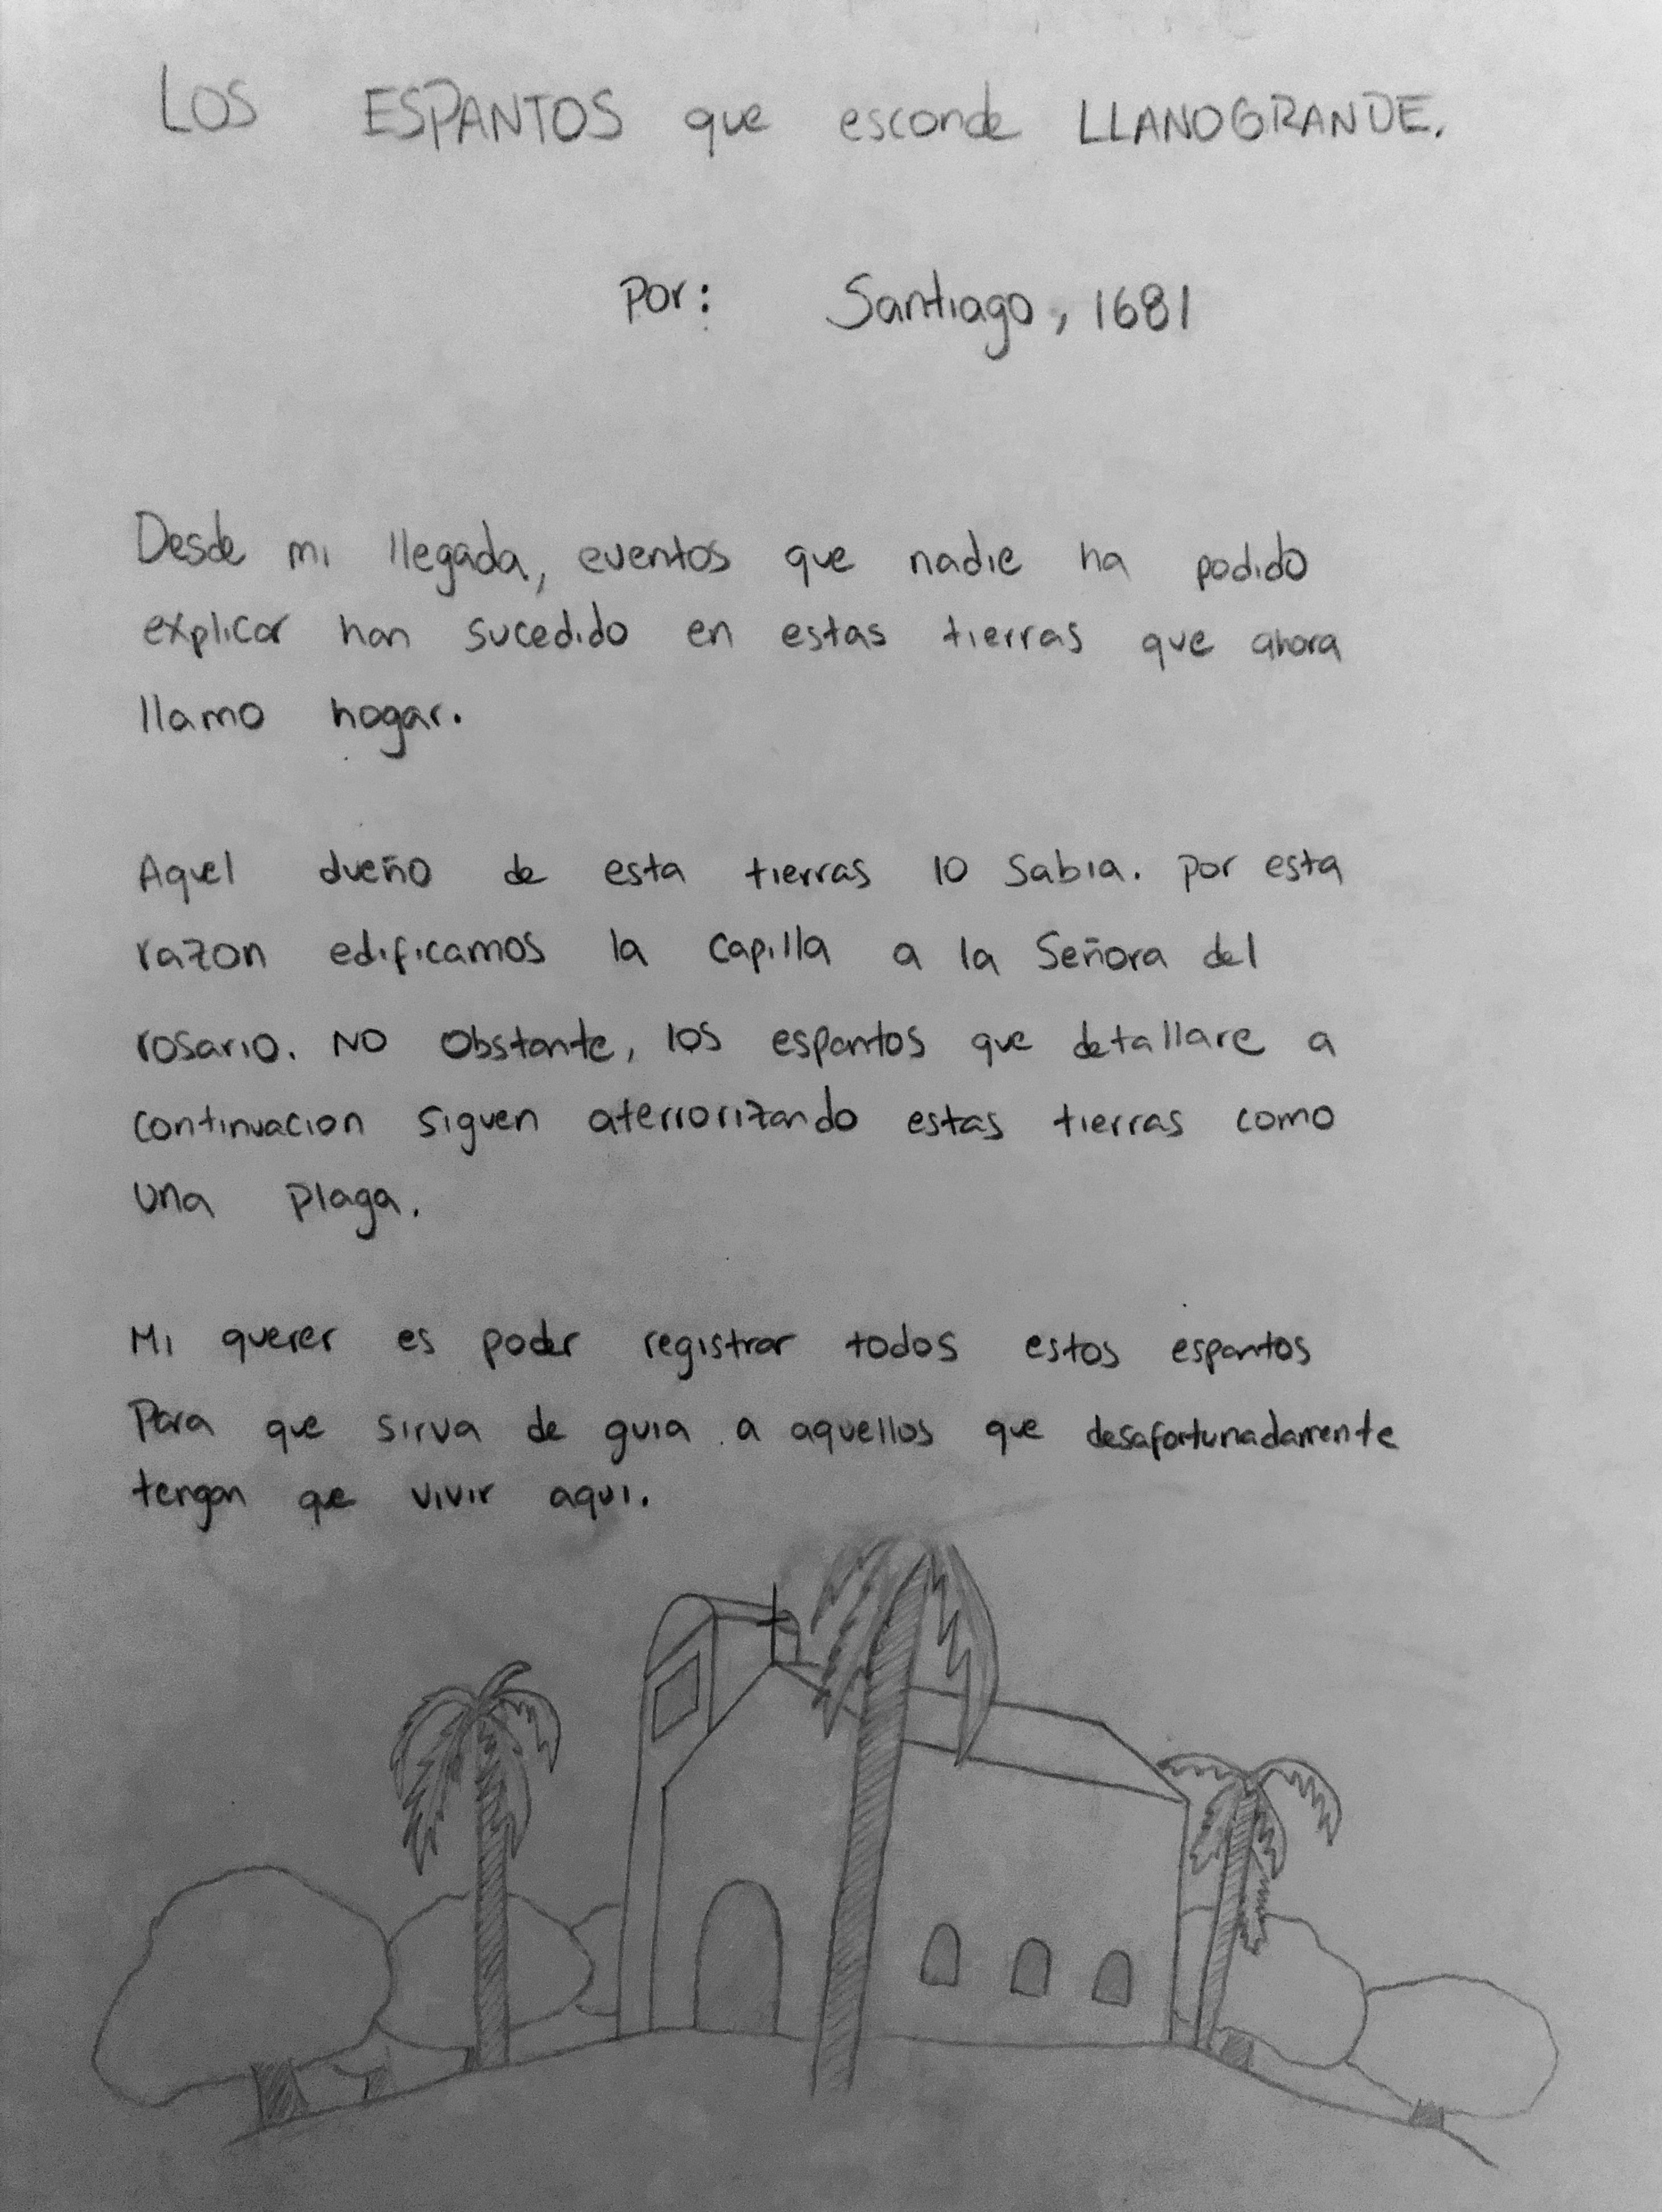 LOS ESPANTOS que esconde LLANOGRANDE.
Por: Santiago, 1681
Desde mi llegada, eventos que nadie ha podido
explicar han sucedido en estas tierras que ahora
llamo hogar.
Aquel dueño de esta tierras lo sabia. Por esta
razon edificamos la capilla a la Señora del
rosario. NO Obstante, los espantos que detallare a
continuacion siguen aterrorizando estas tierras como
una plaga.
Mi querer es poder registrar todos estos espantos
Para que sirva de guia a aquellos que desafortunadamente
tengan que vivir aqui.